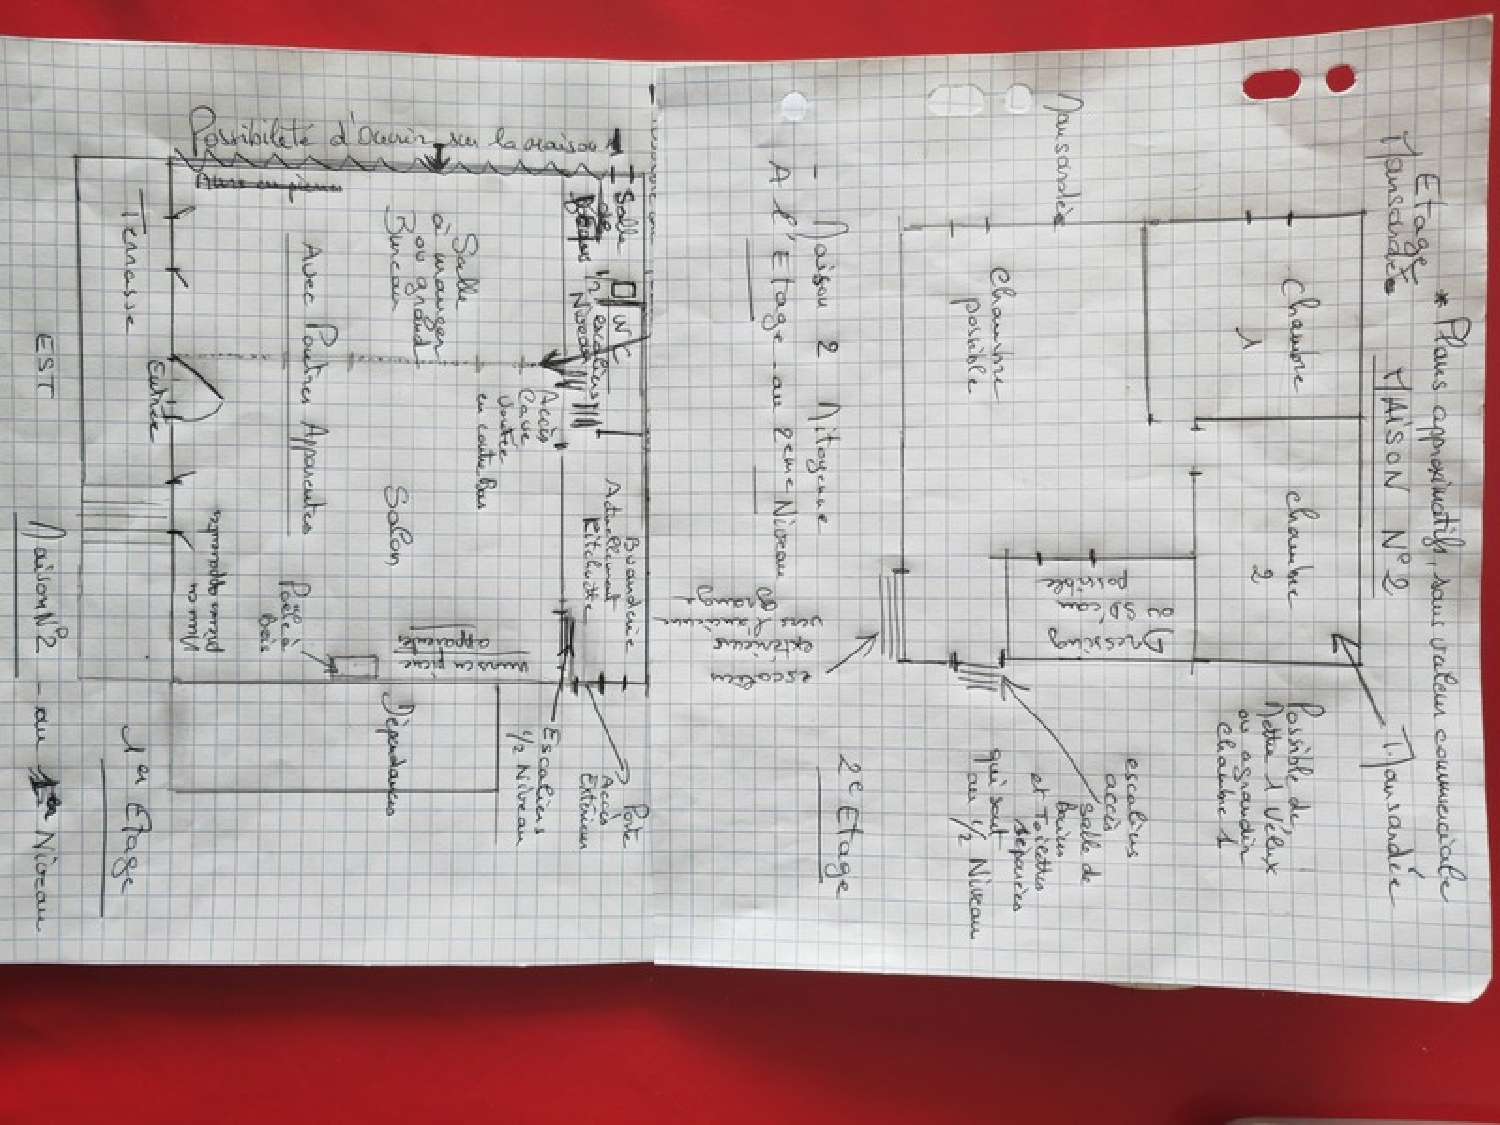 * Plans approximatifs, sans valeur commerciale
Etage
Mansardée
MAISON N°2
Mansardée
Chambre
1
Chambre
2
Possible de
Mettre 1 Vélux
ou agrandir
Chambre 1
Mansardée
Chambre
possible
Dressing
ou SD'eau
possible
escaliers
accès
Salle de
bains
et Toilettes
séparées
qui sont
au 1/2 Niveau
escaliers
extérieur
vers l'ancienne
grange
- Maison 2 Mitoyenne
A l'Etage - au 2eme Niveau
2e Etage
Salle
de
Bains
WC
1/2
Niveau
escaliers
Buanderie
Actuellement
Kitchnette
Porte
Accès
Extérieur
Escaliers
1/2 Niveau
Accès
Cave
Voutée
en contre Bas
Possibilité d'Ouvrir sur la maison 1
Salle
à manger
ou grand
Bureau
Salon
murs en pierre
apparente
Dépendances
Avec Poutres Apparentes
Poêle à
Bois
Entrée
Terrasse
EST
1er Etage
Maison N°2 - au 1er Niveau